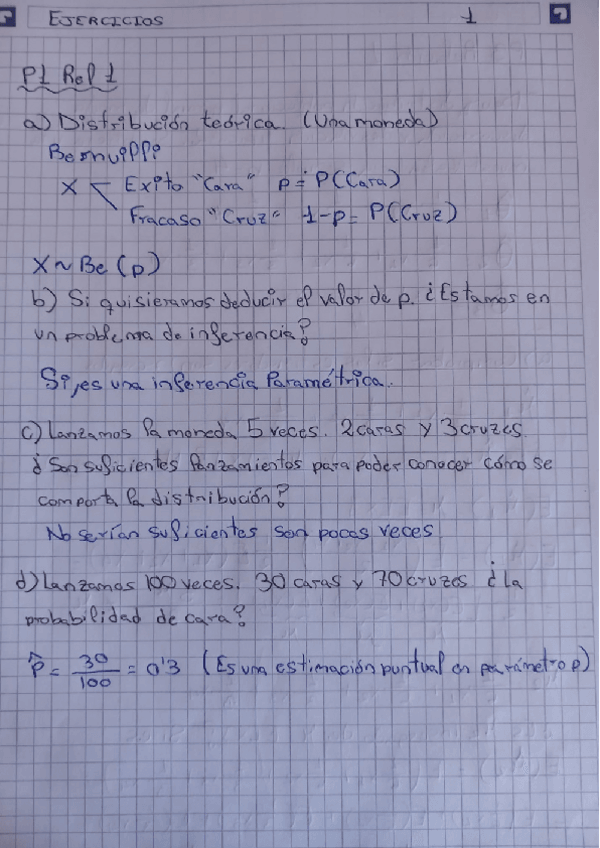 EJERCICIOS 1
P1 Rel 1
a) Distribución teórica. (Una moneda)
Bernuilli
X Exito "Cara" p = P(Cara)
Fracaso "Cruz" 1-p = P(Cruz)
X ~ Be (p)
b) Si quisieramos deducir el valor de p. ¿Estamos en
un problema de inferencia?
Si, es una inferencia Paramétrica.
c) Lanzamos la moneda 5 veces. 2 caras y 3 cruzes
¿Son suficientes lanzamientos para poder conocer cómo se
comporta la distribución?
No serían suficientes son pocas veces
d) Lanzamos 100 veces. 30 caras y 70 cruzes ¿La
probabilidad de cara?
p̂ = 30/100 = 0'3 (Es una estimación puntual en parámetro p)